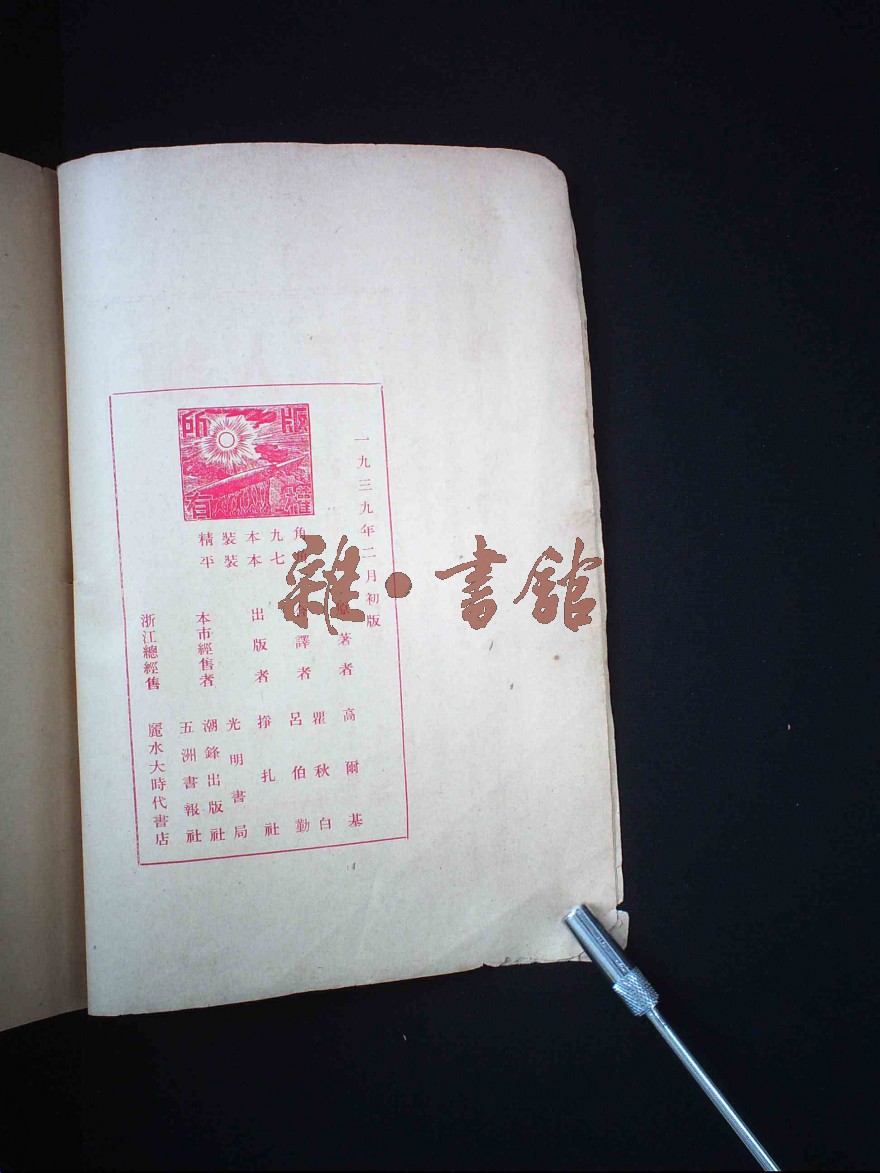 版權所有
一九三九年二月初版
精裝本九角
平裝本七
著者 高爾基
譯者 瞿秋白 呂伯勤
出版者 掙扎社
本市經售者 光明書局 潮鋒出版社 五洲書報社
浙江總經售 麗水大時代書店
雜·書館